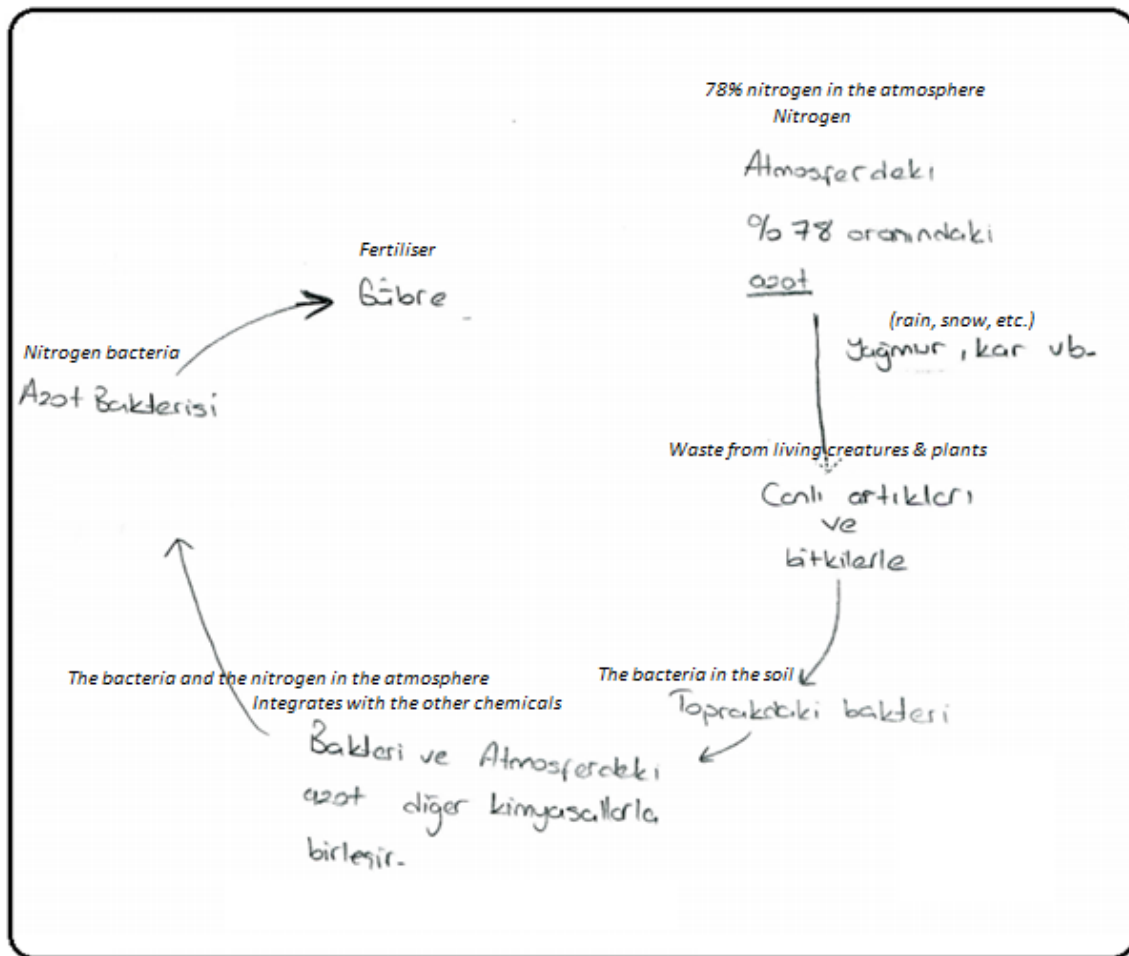 78% nitrogen in the atmosphere
Nitrogen
Atmosferdeki
% 78 oranındaki
azot
(rain, snow, etc.)
Yağmur, kar vb.
Waste from living creatures & plants
Canlı artıkları
ve
bitkilerle
The bacteria in the soil
Toprakdaki bakteri
The bacteria and the nitrogen in the atmosphere
Integrates with the other chemicals
Bakteri ve Atmosferdeki
azot diğer kimyasallarla
birleşir.
Nitrogen bacteria
Azot Bakterisi
Fertiliser
Gübre